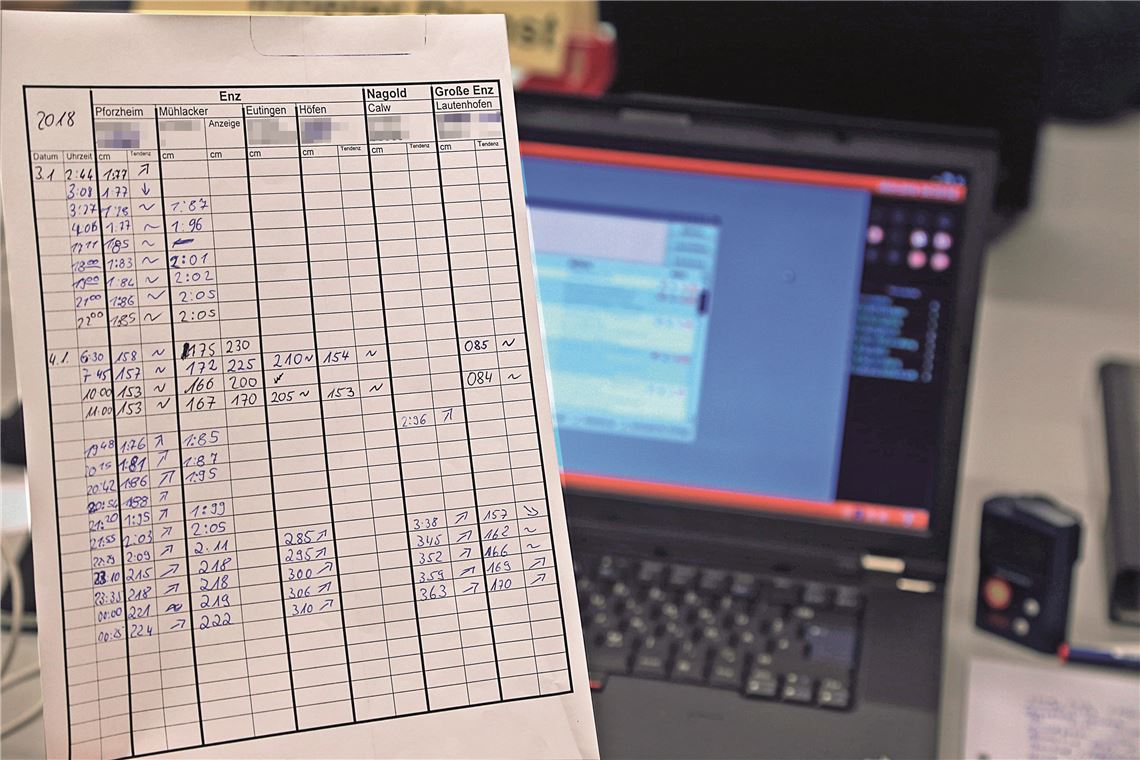 Enz Nagold Große Enz
2018 Pforzheim Mühlacker Eutingen Höfen Calw Lautenhofen
Anzeige
Datum Uhrzeit cm Tendenz cm cm cm cm Tendenz cm Tendenz cm Tendenz
3.1 2:44 1:77 ↗
3:08 1:77 ↓
3:27 1:78 ~ 1:87
4:06 1:77 ~ 1:96
17:11 185 ~
18:00 1:83 ~ 2:01
19:00 1:84 ~ 2:02
21:00 1:86 ~ 2:05
22:00 185 ~ 2:05
4.1. 6:30 158 ~ 175 230 085 ~
7:45 157 ~ 172 225 210 ~ 154 ~
10:00 153 ~ 166 200 084 ~
11:00 153 ~ 167 170 205 ~ 153 ~
2:96 ↗
19:48 1:76 ↗ 1:85
20:15 1:81 ↗ 1:87
20:42 186 ↗ 1:95
20:54 188 ↗
21:20 1:95 ↗ 1:99
21:55 2:03 ↗ 2:05 285 ↗ 3:38 ↗ 157 ↘
2:09 ↗ 2:11 295 ↗ 345 ↗ 162 ~
23:10 215 ↗ 218 300 ↗ 352 ↗ 166 ~
23:35 218 ↗ 218 306 ↗ 359 ↗ 169 ↗
00:00 221 ~ 219 310 ↗ 363 ↗ 170 ↗
00:25 224 ↗ 222